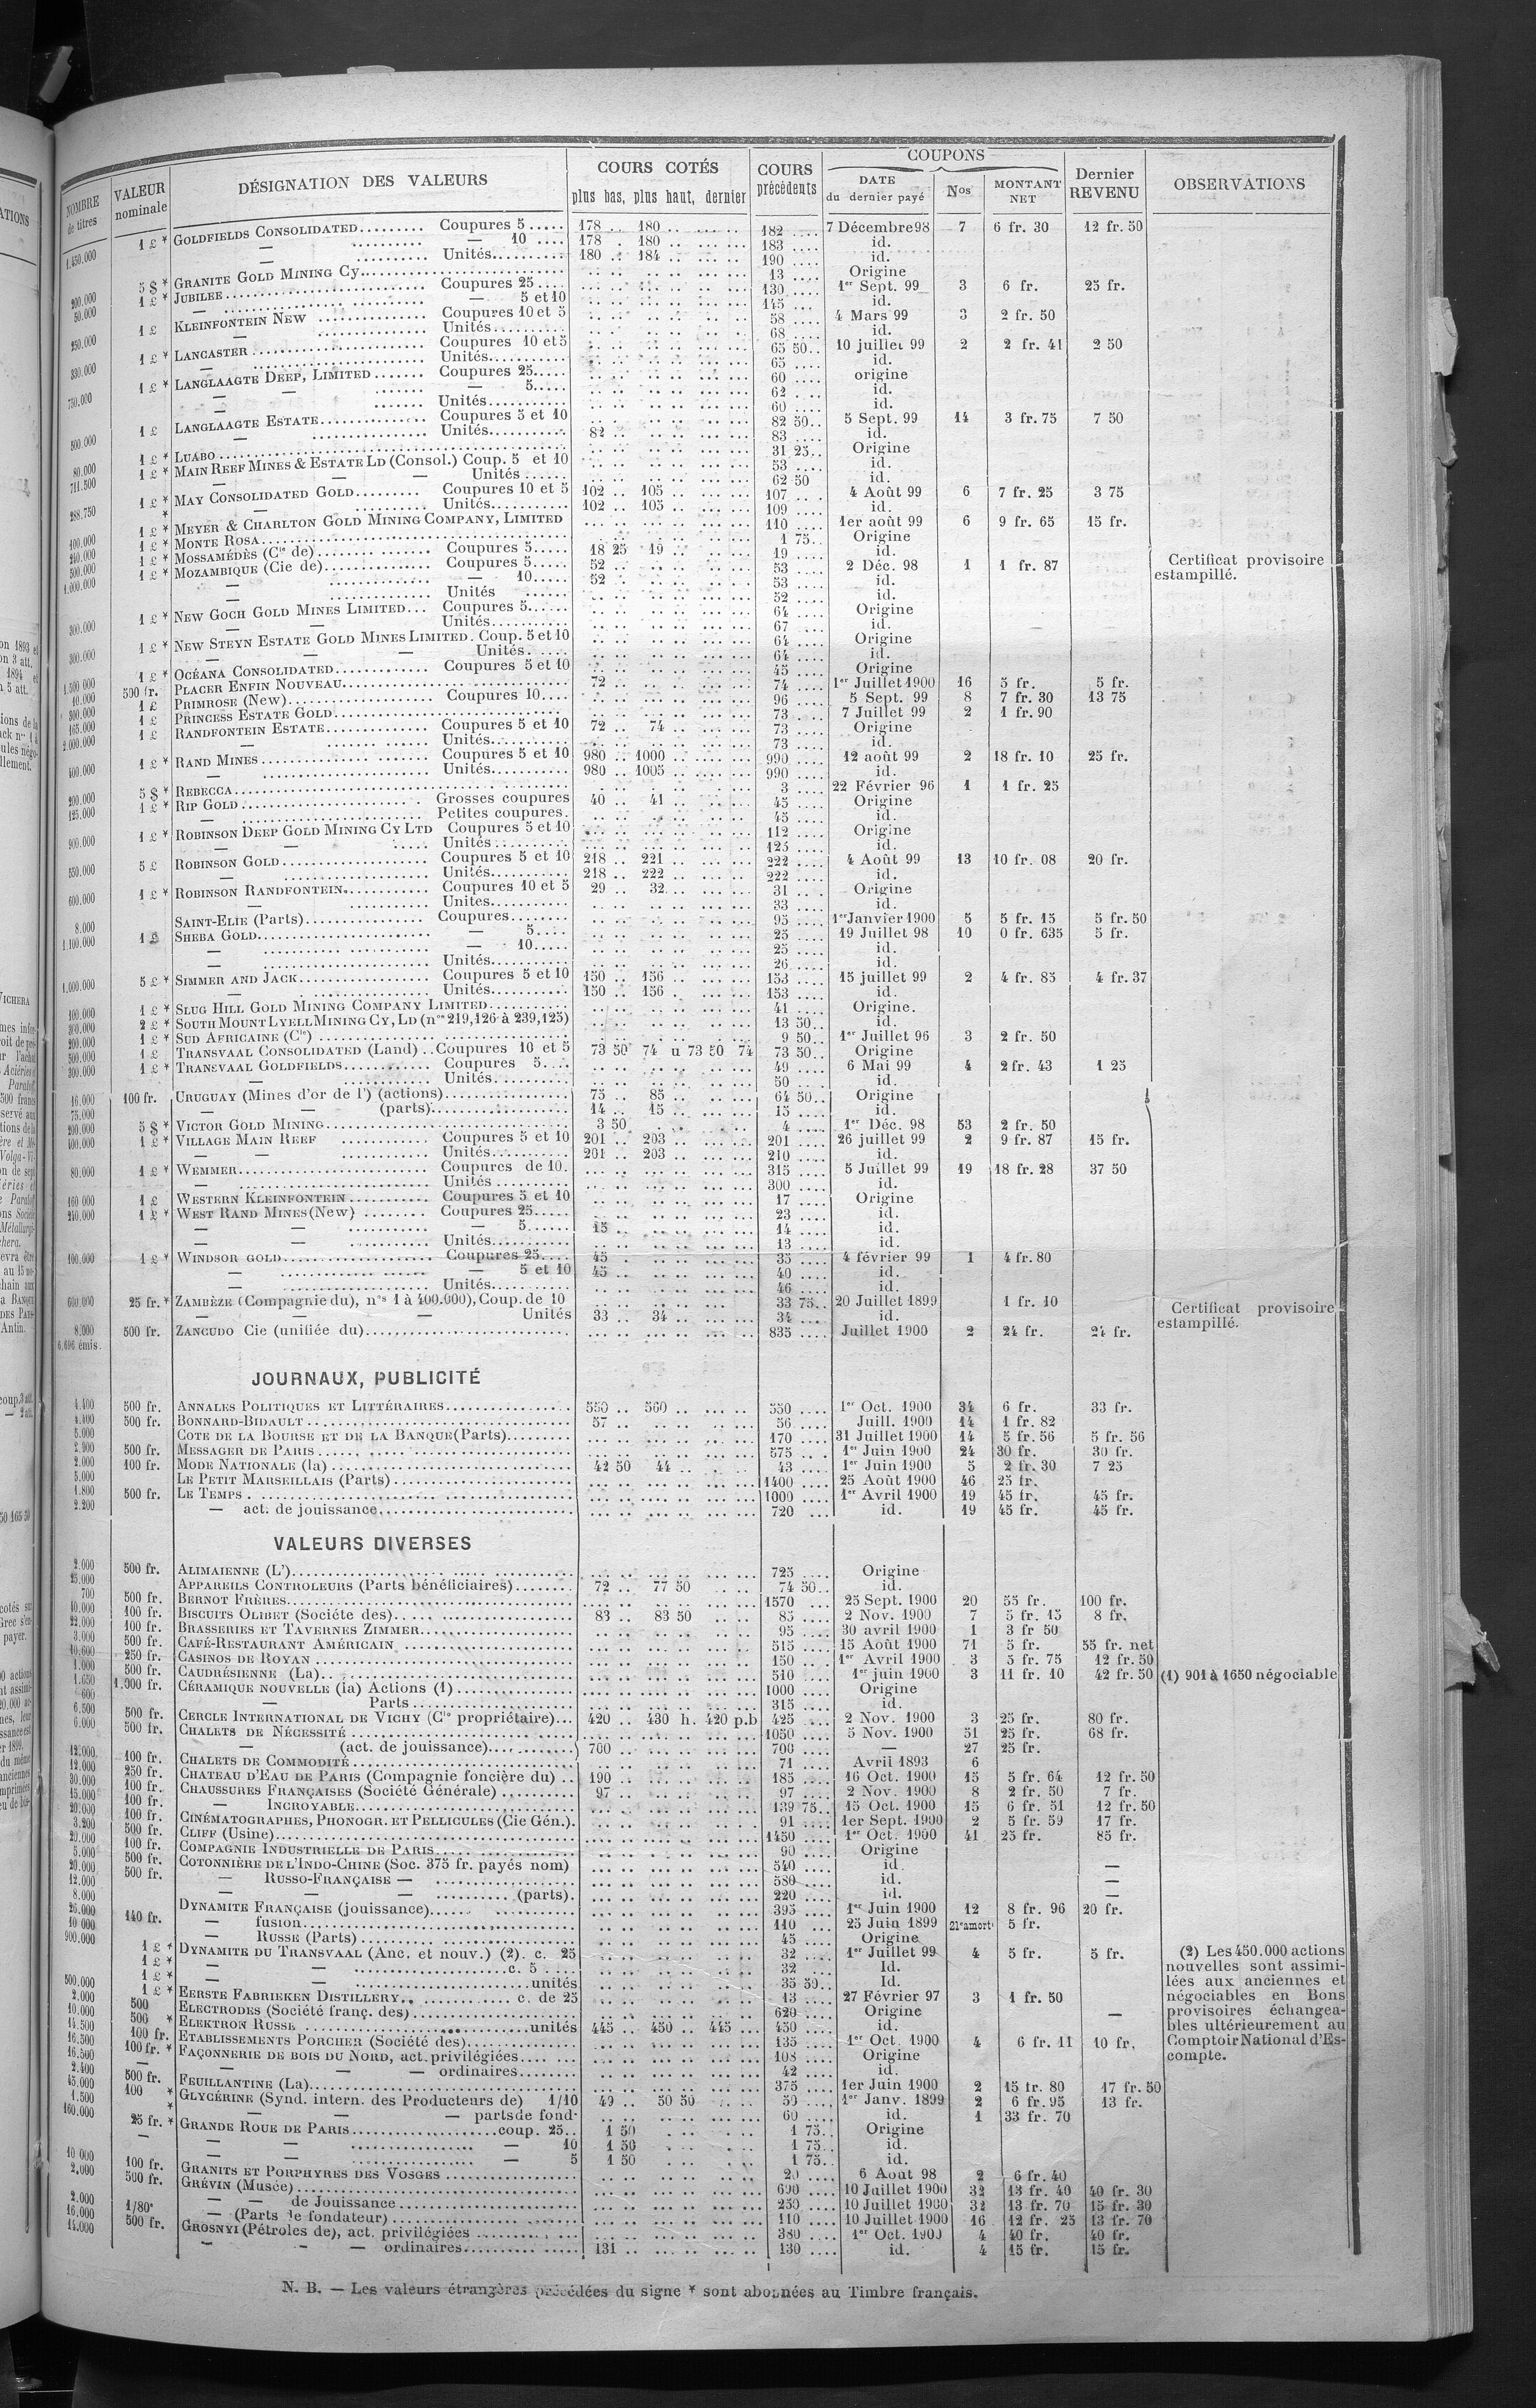 NOMBRE de titres | VALEUR nominale | DÉSIGNATION DES VALEURS | COURS COTÉS plus bas, plus haut, dernier | COURS précédents | COUPONS DATE du dernier payé | Nos | MONTANT NET | Dernier REVENU | OBSERVATIONS
1.450.000 1 £ * GOLDFIELDS CONSOLIDATED......... Coupures 5 ..... 178 .. 180 .. 182 .... 7 Décembre98 7 6 fr. 30 12 fr. 50
— — 10 .... 178 . 180 .. 183 .... id.
— Unités.......... 180 .. 184 .. 190 .... id.
200.000 5 $ * GRANITE GOLD MINING Cy.......... 13 .... Origine
50.000 1 £ * JUBILEE.......... Coupures 25 .... 130 .... 1er Sept. 99 3 6 fr. 25 fr.
— — 5 et 10 145 ... id.
250.000 1 £ KLEINFONTEIN NEW .......... Coupures 10 et 5 58 .... 4 Mars 99 3 2 fr. 50
— Unités.......... 68 .... id.
330.000 1 £ * LANCASTER .......... Coupures 10 et 5 65 50.. 10 juillet 99 2 2 fr. 41 2 50
— Unités.......... 65 .... id.
750.000 1 £ * LANGLAAGTE DEEP, LIMITED....... Coupures 25..... 60 .... origine
— — — 5..... 62 .... id.
— Unités.......... 60 .... id.
500.000 1 £ LANGLAAGTE ESTATE.......... Coupures 5 et 10 82 50.. 5 Sept. 99 14 3 fr. 75 7 50
— Unités.......... 82 .. 83 .... id.
80.000 1 £ * LUABO .......... 31 25.. Origine
711.500 1 £ * MAIN REEF MINES & ESTATE LD (Consol.) Coup. 5 et 10 53 .... id.
— — — Unités ...... 62 50 id.
288.750 1 £ * MAY CONSOLIDATED GOLD......... Coupures 10 et 5 102 .. 105 .. 107 ... 4 Août 99 6 7 fr. 25 3 75
* — Unités.......... 102 .. 105 .. 109 .... id.
100.000 1 £ * MEYER & CHARLTON GOLD MINING COMPANY, LIMITED 110 .... 1er août 99 6 9 fr. 65 15 fr.
240.000 1 £ * MONTE ROSA.......... 1 75.. Origine
500.000 1 £ * MOSSAMÉDÈS (Cie de).......... Coupures 5..... 18 25 19 .. 19 .... id.
1.000.000 1 £ * MOZAMBIQUE (Cie de).......... Coupures 5..... 52 .. 53 .... 2 Déc. 98 1 1 fr. 87 Certificat provisoire estampillé.
— — 10..... 52 .. 53 .... id.
— Unités ...... 52 .... id.
300.000 1 £ * NEW GOCH GOLD MINES LIMITED... Coupures 5...... 64 .... Origine
— — Unités.......... 67 .... id.
300.000 1 £ * NEW STEYN ESTATE GOLD MINES LIMITED. Coup. 5 et 10 64 .... Origine
— — — Unités. .... 64 .... id.
1.500 000 1 £ * OCÉANA CONSOLIDATED............. Coupures 5 et 10 45 .... Origine
10.000 500 fr. PLACER ENFIN NOUVEAU.......... 72 .. 74 .... 1er Juillet 1900 16 5 fr. 5 fr.
300.000 1 £ PRIMROSE (New).......... Coupures 10.... 96 .... 5 Sept. 99 8 7 fr. 30 13 75
165.000 1 £ PRINCESS ESTATE GOLD.......... 73 .... 7 Juillet 99 2 1 fr. 90
2.000.000 1 £ RANDFONTEIN ESTATE............. Coupures 5 et 10 72 .. 74 .. 73 .... Origine
— Unités.......... 73 .... id.
400.000 1 £ * RAND MINES.......... Coupures 5 et 10 980 .. 1000 .. 990 .... 12 août 99 2 18 fr. 10 25 fr.
— Unités.......... 980 .. 1005 .. 990 .... id.
200.000 5 $ * REBECCA.......... 3 .... 22 Février 96 1 1 fr. 25
125.000 1 £ * RIP GOLD.......... Grosses coupures 40 .. 41 .. 45 .... Origine
— Petites coupures. 45 .... id.
900.000 1 £ * ROBINSON DEEP GOLD MINING CY LTD Coupures 5 et 10 112 .... Origine
— — Unités.......... 125 .... id.
550.000 5 £ ROBINSON GOLD.......... Coupures 5 et 10 218 .. 221 .. 222 .... 4 Août 99 13 10 fr. 08 20 fr.
— Unités.......... 218 .. 222 .. 222 .... id.
600.000 1 £ * ROBINSON RANDFONTEIN............ Coupures 10 et 5 29 .. 32 .. 31 .... Origine
— Unités.......... 33 .... id.
8.000 SAINT-ELIE (Parts)................. Coupures........ 95 .... 1er Janvier 1900 5 5 fr. 15 5 fr. 50
1.100.000 1 £ SHEBA GOLD.......... — 5.... 25 .... 19 Juillet 98 10 0 fr. 635 5 fr.
— — 10..... 25 .... id.
— Unités.......... 26 .... id.
1,000.000 5 £ * SIMMER AND JACK.......... Coupures 5 et 10 150 .. 156 .. 153 .... 15 juillet 99 2 4 fr. 85 4 fr. 37
— Unités.......... 150 .. 156 . 153 .... id.
100.000 1 £ * SLUG HILL GOLD MINING COMPANY LIMITED.......... 41 .... Origine.
300.000 2 £ * SOUTH MOUNT LYELL MINING CY, LD (nos 219,126 à 239,125) 13 50.. id.
200.000 1 £ * SUD AFRICAINE (Cie) .......... 9 50.. 1er Juillet 96 3 2 fr. 50
500.000 1 £ TRANSVAAL CONSOLIDATED (Land) .. Coupures 10 et 5 73 50 74 u 73 50 74 73 50.. Origine
300.000 1 £ * TRANSVAAL GOLDFIELDS............ Coupures 5.... 49 .... 6 Mai 99 4 2 fr. 43 1 25
— Unités.......... 50 .... id.
16.000 100 fr. URUGUAY (Mines d'or de l') (actions)................. 75 .. 85 .. 64 50.. Origine
75.000 — — (parts).................... 14 .. 15 .. 15 .... id.
200.000 5 $ * VICTOR GOLD MINING.......... 3 50 4 .... 1er Déc. 98 53 2 fr. 50
400.000 1 £ * VILLAGE MAIN REEF ............ Coupures 5 et 10 201 .. 203 .. 201 .... 26 juillet 99 2 9 fr. 87 15 fr.
— — Unités.......... 201 .. 203 .. 210 .... id.
80.000 1 £ * WEMMER.......... Coupures de 10. 315 .... 5 Juillet 99 19 18 fr. 28 37 50
— Unités .......... 300 .... id.
160 000 1 £ WESTERN KLEINFONTEIN........... Coupures 5 et 10 17 .... Origine
240.000 1 £ * WEST RAND MINES (New) ........ Coupures 25..... 23 .... id.
— — — 5...... 15 .. 14 .... id.
— — Unités.......... 13 .... id.
100.000 1 £ * WINDSOR GOLD.......... Coupures 25.... 45 .. 35 .... 4 février 99 1 4 fr. 80
— — 5 et 10 45 .. 40 .... id.
— Unités.......... 46 .... id.
600.000 25 fr. * ZAMBÈZE (Compagnie du), nos 1 à 400.000), Coup. de 10 33 75.. 20 Juillet 1899 1 fr. 10 Certificat provisoire estampillé.
— — — Unités 33 .. 34 .. 34 .... id.
8.000 500 fr. ZANCUDO Cie (unifiée du).......... 835 .... Juillet 1900 2 24 fr. 24 fr.
6.696 émis.
JOURNAUX, PUBLICITÉ
4.400 500 fr. ANNALES POLITIQUES ET LITTÉRAIRES................ 550 .. 560 .. 550 .... 1er Oct. 1900 34 6 fr. 33 fr.
4.400 500 fr. BONNARD-BIDAULT .......... 57 .. 56 .... Juill. 1900 14 1 fr. 82
5.000 COTE DE LA BOURSE ET DE LA BANQUE (Parts)......... 170 .... 31 Juillet 1900 14 5 fr. 56 5 fr. 56
2.900 500 fr. MESSAGER DE PARIS .......... 575 .... 1er Juin 1900 24 30 fr. 30 fr.
2.000 100 fr. MODE NATIONALE (la) .......... 42 50 44 .. 43 .... 1er Juin 1900 5 2 fr. 30 7 25
5.000 LE PETIT MARSEILLAIS (Parts).......... 1400 .... 25 Août 1900 46 25 fr.
1.800 500 fr. LE TEMPS .......... 1000 .... 1er Avril 1900 19 45 fr. 45 fr.
2.200 — act. de jouissance.......... 720 ... id. 19 45 fr. 45 fr.
VALEURS DIVERSES
2.000 500 fr. ALIMAIENNE (L').......... 725 .... Origine
25.000 APPAREILS CONTROLEURS (Parts bénéficiaires)........ 72 .. 77 50 74 50.. id.
700 500 fr. BERNOT FRÈRES.......... 1570 .... 25 Sept. 1900 20 55 fr. 100 fr.
10.000 100 fr. BISCUITS OLIBET (Société des).......... 83 .. 83 50 85 .... 2 Nov. 1900 7 5 fr. 15 8 fr.
22.000 100 fr. BRASSERIES ET TAVERNES ZIMMER.......... 95 .... 30 avril 1900 1 3 fr 50
3.000 500 fr. CAFÉ-RESTAURANT AMÉRICAIN .......... 515 .... 15 Août 1900 71 5 fr. 55 fr. net
10.600 250 fr. CASINOS DE ROYAN .......... 150 .... 1er Avril 1900 3 5 fr. 75 12 fr. 50
1.000 500 fr. CAUDRÉSIENNE (La).......... 510 .... 1er juin 1900 3 11 fr. 10 42 fr. 50 (1) 901 à 1650 négociable
1.650 1.000 fr. CÉRAMIQUE NOUVELLE (la) Actions (1) .......... 1000 .... Origine
600 — Parts .......... 315 .... id.
6.500 500 fr. CERCLE INTERNATIONAL DE VICHY (Cie propriétaire)... 420 .. 430 h. 420 p.b 425 .... 2 Nov. 1900 3 25 fr. 80 fr.
6.000 500 fr. CHALETS DE NÉCESSITÉ .......... 1050 .... 5 Nov. 1900 51 25 fr. 68 fr.
— (act. de jouissance).......... 700 .. 700 .... — 27 25 fr.
12.000 100 fr. CHALETS DE COMMODITÉ .......... 71 .... Avril 1893 6
12.000 250 fr. CHATEAU D'EAU DE PARIS (Compagnie foncière du) .. 190 .. 185 .... 16 Oct. 1900 15 5 fr. 64 12 fr. 50
30.000 100 fr. CHAUSSURES FRANÇAISES (Société Générale) .......... 97 .. 97 .... 2 Nov. 1900 8 2 fr. 50 7 fr.
15.000 100 fr. — INCROYABLE.......... 139 75.. 15 Oct. 1900 15 6 fr. 51 12 fr. 50
20.000 100 fr. CINÉMATOGRAPHES, PHONOGR. ET PELLICULES (Cie Gén.). 91 .... 1er Sept. 1900 2 5 fr. 59 17 fr.
3.200 500 fr. CLIFF (Usine).......... 1450 .... 1er Oct. 1900 41 25 fr. 85 fr.
20.000 100 fr. COMPAGNIE INDUSTRIELLE DE PARIS.......... 90 .... Origine
5.000 500 fr. COTONNIÈRE DE L'INDO-CHINE (Soc. 375 fr. payés nom) 540 .... id. —
20.000 500 fr. — RUSSO-FRANÇAISE — .......... 580 .... id. —
12.000 — — — .......... (parts). 220 .... id. —
8.000 DYNAMITE FRANÇAISE (jouissance).......... 395 .... 1er Juin 1900 12 8 fr. 96 20 fr.
26.000 140 fr. — fusion.......... 110 ... 25 Juin 1899 21e amort 5 fr.
10 000 — RUSSE (Parts) .......... 45 .... Origine
900.000 1 £ * DYNAMITE DU TRANSVAAL (Anc. et nouv.) (2). c. 25 32 .... 1er Juillet 99 4 5 fr. 5 fr. (2) Les 450.000 actions
1 £ * — — .......... c. 5 .... 32 .... Id. nouvelles sont assimi-
1 £ * — — .......... unités 35 50.. Id. lées aux anciennes et
500.000 1 £ * EERSTE FABRIEKEN DISTILLERY.......... c. de 25 13 .... 27 Février 97 3 1 fr. 50 négociables en Bons
2.000 500 ELECTRODES (Société franç. des).......... 620 .... Origine — provisoires échangea-
10.000 500 * ELEKTRON RUSSE .......... unités 445 .. 450 .. 445 ... 450 .... id. bles ultérieurement au
14.500 100 fr. ETABLISSEMENTS PORCHER (Société des).......... 135 .... 1er Oct. 1900 4 6 fr. 11 10 fr. Comptoir National d'Es-
16.500 100 fr. * FAÇONNERIE DE BOIS DU NORD, act. privilégiées.......... 108 .... Origine compte.
16.500 — — — ordinaires........ 42 .... id.
2.400 500 fr. FEUILLANTINE (La).......... 375 .... 1er Juin 1900 2 15 fr. 80 17 fr. 50
45.000 100 * GLYCÉRINE (Synd. intern. des Producteurs de) 1/10 49 .. 50 50 50 .... 1er Janv. 1899 2 6 fr. 95 13 fr.
1.500 * — — — parts de fond. 60 .... id. 1 33 fr. 70
160.000 25 fr. * GRANDE ROUE DE PARIS.......... coup. 25.. 1 50 1 75.. Origine
— — — — 10 1 50 1 75.. id.
— — — 5 1 50 1 75.. id.
10 000 100 fr. GRANITS ET PORPHYRES DES VOSGES .......... 20 .... 6 Aout 98 2 6 fr. 40
2.000 500 fr. GRÉVIN (Musée).......... 690 .... 10 Juillet 1900 32 13 fr. 40 40 fr. 30
— — de Jouissance.......... 250 .... 10 Juillet 1900 32 13 fr. 70 15 fr. 30
2.000 1/80e — (Parts de fondateur).......... 110 .... 10 Juillet 1900 16 12 fr. 25 13 fr. 70
16.000 500 fr. GROSNYI (Pétroles de), act. privilégiées .......... 380 .... 1er Oct. 1900 4 40 fr. 40 fr.
14.000 — — — ordinaires.......... 131 .. 130 .... id. 4 15 fr. 15 fr.
N. B. — Les valeurs étrangères précédées du signe * sont abonnées au Timbre français.